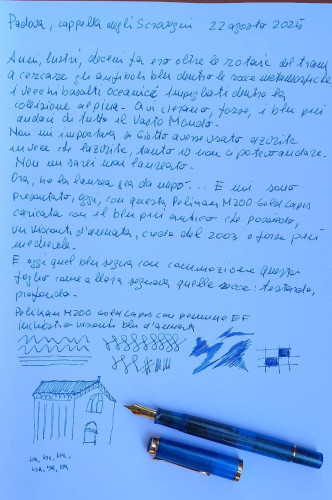 Padova, cappella degli Scrovegni 22 agosto 2025
Anni, lustri, decenni fa ero oltre le rotaie del tram
a cercare gli anfiboli blu dentro le rocce metamorfiche
i vecchi basalti oceanici impigliati dentro la
collisione alpina. Qui c'erano, forse, i blu più
audaci di tutto il Vasto Mondo.
Non mi importava se Giotto avesse usato azzurrite
invece che lazurite, tanto io non ci potevo andare.
Non mi sarei mai laureato.
Ora, ho la laurea già da dopo.... E mi sono
presentato, oggi, con questa Pelikan M200 Gold Lapis
caricata con il blu più antico che possiedo,
un Visconti d'annata, credo del 2003 o forse più
medievale.
E oggi quel blu segna con commozione questo
foglio come allora segnava quelle rocce: tostando,
profonda.
Pelikan M200 Gold Lapis con pennino EF
Inchiostro Visconti blu d'annata